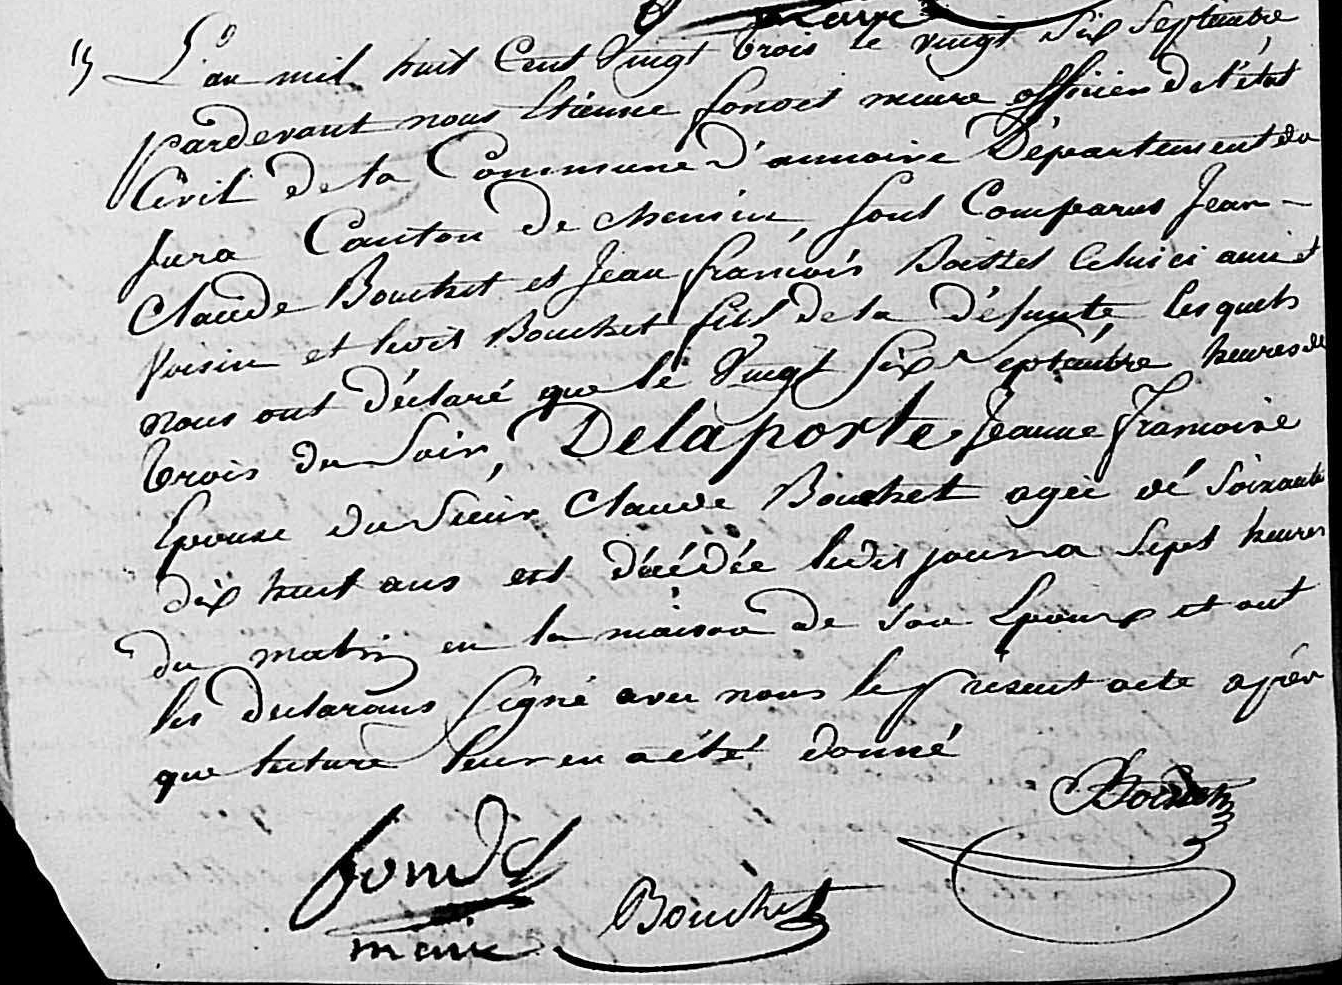 maire
L'an mil huit Cent Vingt trois le vingt Six Septembre
pardevant nous Etienne fonoit maire officier de l'état
Civil de la Commune D'annoire Département du
Jura Canton de chemin, sont Comparus Jean-
Claude Bouchet et Jean françois Boisset Celuici ami et
Voisin et ledit Bouchet fils de la défunte, lesquels
nous ont déclaré que le Vingt Six Septembre heures de
trois du Soir, Delaporte Jeanne Francoise
Epouse du Sieur Claude Bouchet agée de Soixante
dix huit ans est décédée ledit jour a Sept heures
du matin en la maison de son Epoux et ont
les declarans Signé avec nous le présent acte après
que lecture leur en a été donné
maire Bouchet